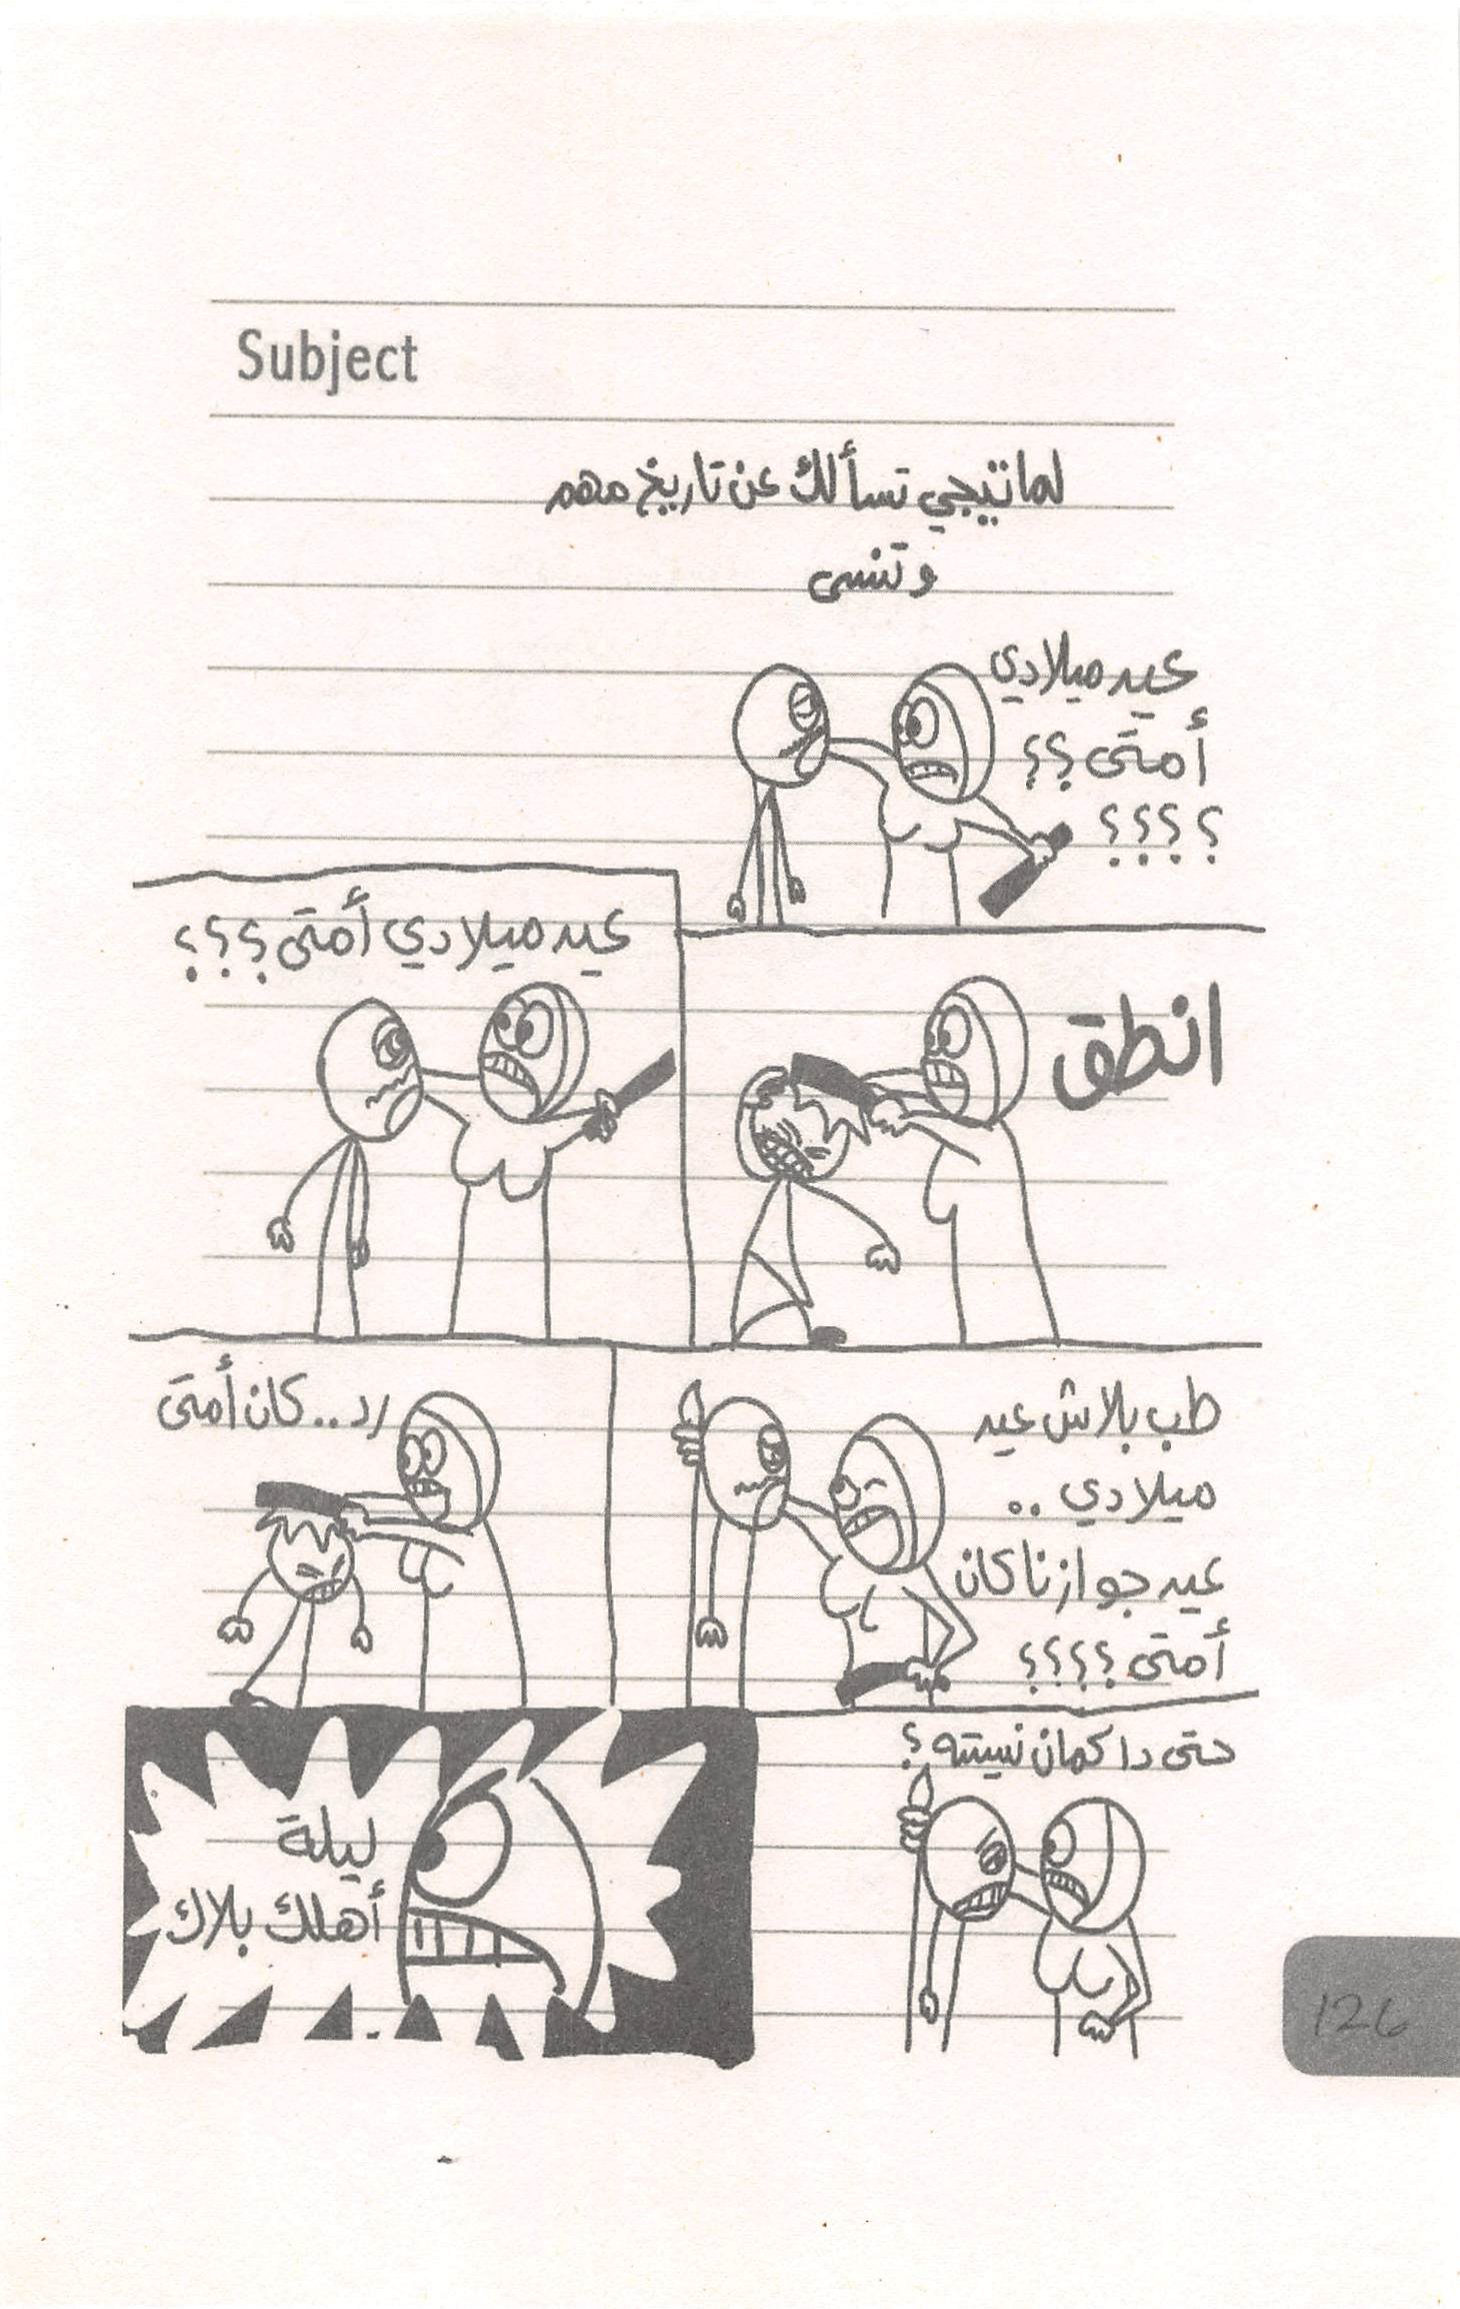 Subject
لما تيجي تسألك عن تاريخ مهم
وتنسى
عيد ميلادي
أمتى؟؟
؟؟؟؟
انطق
عيد ميلادي أمتى؟؟؟
طب بلاش عيد
ميلادي..
عيد جوازنا كان
أمتى؟؟؟؟
رد..كان أمتى
حتى دا كمان نسيته؟
ليلة
أهلك بلاك
126